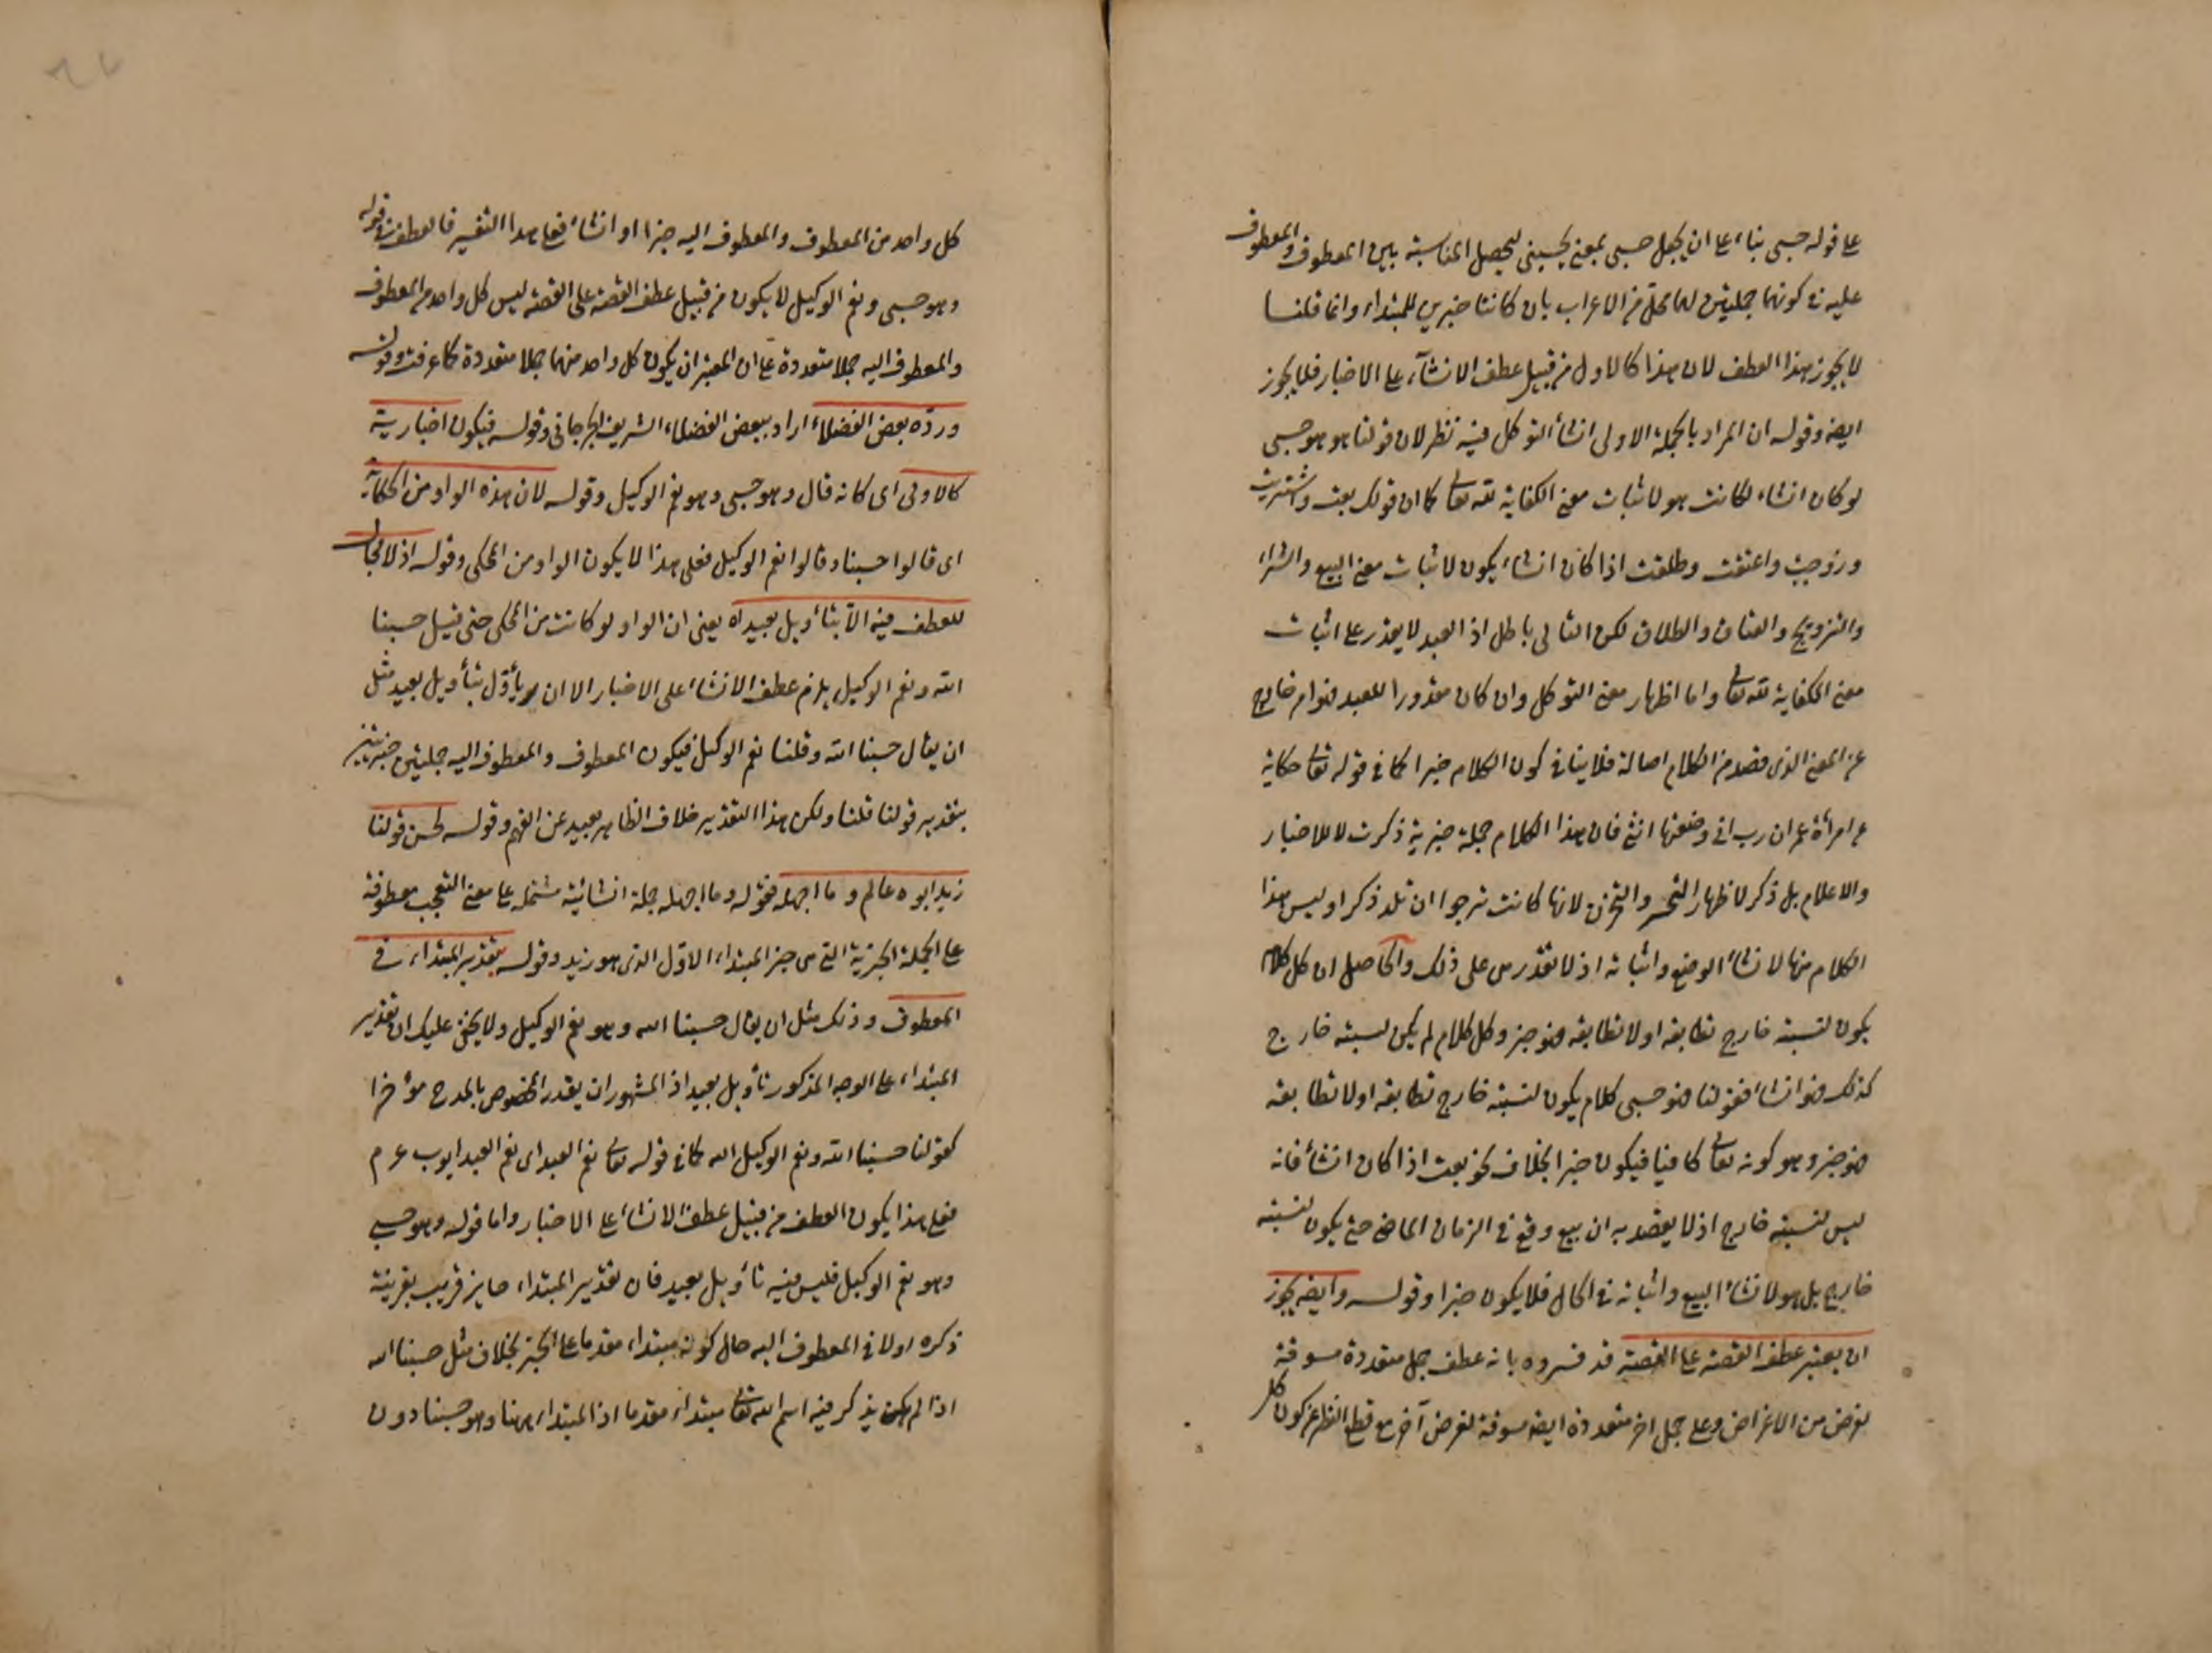 على قوله حسبى بناء على ان يجعل حسبى بمعنى يحسبنى ليحصل المناسبة بين المعطوف والمعطوف
عليه فى كونهما جملتين لهما محل من الاعراب بان كانتا خبرين للمبتداء وانما قلنا
لا يجوز هذا العطف لان هذا كالاول من قبيل عطف الانشآء على الاخبار فلا يجوز
ايضه وقوله ان المراد بالجملة الاولى انشأ التوكل فيه نظر لان قولنا هو هو حسبى
لو كان انشاء لكانت هو لاثبات معنى الكفاية لله تعالى كما ان قولك بعت واشتريت
وزوجت واعتقت وطلقت اذا كان انشاء يكون لاثبات معنى البيع والشراء
والتزويج والعتاق والطلاق لكن التالى باطل اذ العبد لا يقدر على اثبات
معنى الكفاية لله تعالى واما اظهار معنى التوكل وان كان مقدورا للعبد فهو امر خارج
عن المعنى الذى قصد من الكلام اصالة فلا ينافى كون الكلام خبرا كما فى قوله تعالى حكاية
عن امرأة عمران رب انى وضعتها انثى فان هذا الكلام جملة خبرية ذكرت لا للاخبار
والاعلام بل ذكر لاظهار التحسر والتحزن لانها كانت ترجوا ان تلد ذكرا وليس هذا
الكلام منها لانشأ الوضع واثباته اذ لا تقدر هى على ذلك والحاصل ان كل كلام
يكون لنسبته خارج تطابقه اولا تطابقه فهو خبر وكل كلام لم يكن لنسبته خارج
كذلك فهو انشأ فقولنا فهو حسبى كلام يكون لنسبته خارج تطابقه اولا تطابقه
فهو خبر وهو كونه تعالى كافيا فيكون خبرا بخلاف نحو بعت اذا كان انشأ فانه
ليس لنسبته خارج اذ لا يقصد به ان بيع وقع فى الزمان الماضى حتى يكون لنسبته
خارج بل هو لانشأ البيع واثباته فى الحال فلا يكون خبرا وقوله وايضه يجوز
ان يعتبر عطف القصة على القصة قد فسروه بانه عطف جمل متعددة مسوقة
لغرض من الاغراض وعلى جمل اخر متعددة ايضه مسوقة لغرض آخر مع قطع النظر عن كون كل
كل واحد من المعطوف والمعطوف اليه خبرا او انشأ فعلى هذا التفسير فالعطف فى قوله
وهو حسبى ونعم الوكيل لا يكون من قبيل عطف القصة على القصة ليس كل واحد من المعطوف
والمعطوف اليه جملا متعددة على ان المعتبر ان يكون كل واحد منهما جملا متعددة كما عرفت وقوله
وردّه بعض الفضلاء اراد ببعض الفضلاء الشريف الجرجانى وقوله فيكون اخبارية
كالاولى اى كانه قال وهو حسبى وهو نعم الوكيل وقوله لان هذه الواو من الحكاية
اى قالوا حسبنا وقالوا نعم الوكيل فعلى هذا لا يكون الواو من المحكى وقوله اذ لا مجال
للعطف فيه الا بتأويل بعيد اه يعنى ان الواو لو كانت من المحكى حتى قيل حسبنا
الله ونعم الوكيل يلزم عطف الانشاء على الاخبار الا ان يأوّل بتأويل بعيد مثل
ان يقال حسبنا الله وقلنا نعم الوكيل فيكون المعطوف والمعطوف اليه جملتين خبريتين
بتقدير قولنا قلنا ولكن هذا التقدير خلاف الظاهر بعيد عن الفهم وقوله لحسن قولنا
زيد ابوه عالم وما اجهله فقوله وما اجهله جملة انشائية مشتملة على معنى التعجب معطوفة
على الجملة الخبرية التى هى خبر المبتداء الاوّل الذى هو زيد وقوله بتقدير المبتداء فى
المعطوف وذلك مثل ان يقال حسبنا الله وهو نعم الوكيل ولا يخفى عليك ان تقدير
المبتداء على الوجه المذكور تأويل بعيد اذ المشهور ان يقدر المخصوص بالمدح مؤخرا
كقولنا حسبنا الله ونعم الوكيل الله كما فى قوله تعالى نعم العبد اى نعم العبد ايوب ع م
فعلى هذا يكون العطف من قبيل عطف الانشأ على الاخبار واما قوله وهو حسبى
وهو نعم الوكيل فليس فيه تأويل بعيد فان تقدير المبتداء جايز قريب بقرينة
ذكره اولا فى المعطوف اليه حال كونه مبتداء مقدما على الخبر بخلاف مثل حسبنا الله
اذا لم يكن يذكر فيه اسم الله تعالى مبتداء مقدما اذ المبتداء ههنا وهو حسبنا دون